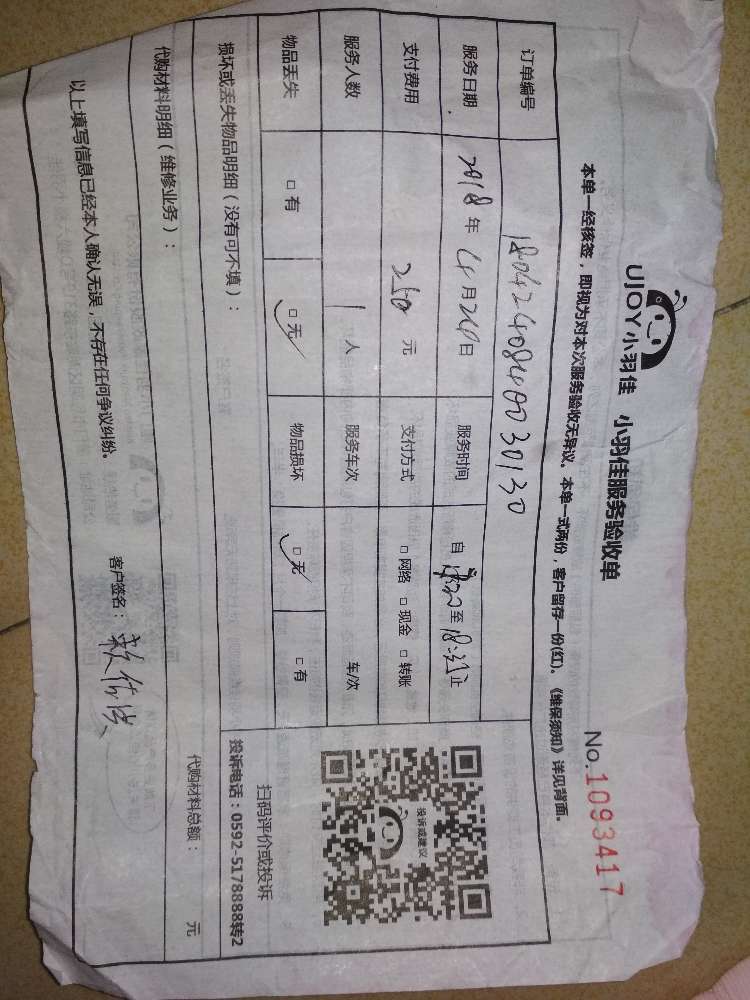 UJOY小羽佳 小羽佳服务验收单 No.1093417
本单一经核签，即视为对本次服务验收无异议。本单一式两份，客户留存一份(红)。《维保须知》详见背面。
订单编号 18042408400 30130
服务日期 2018年4月24日 服务时间 自 至 止
支付费用 250元 支付方式 □网络 □现金 □转账
服务人数 1人 服务车次 车/次
物品丢失 □有 □无 物品损坏 □无 □有
损坏或丢失物品明细（没有可不填）：
投诉或建议
扫码评价或投诉
投诉电话：0592-5178888转2
代购材料明细（维修业务）： 代购材料总额： 元
以上填写信息已经本人确认无误，不存在任何争议纠纷。 客户签名：